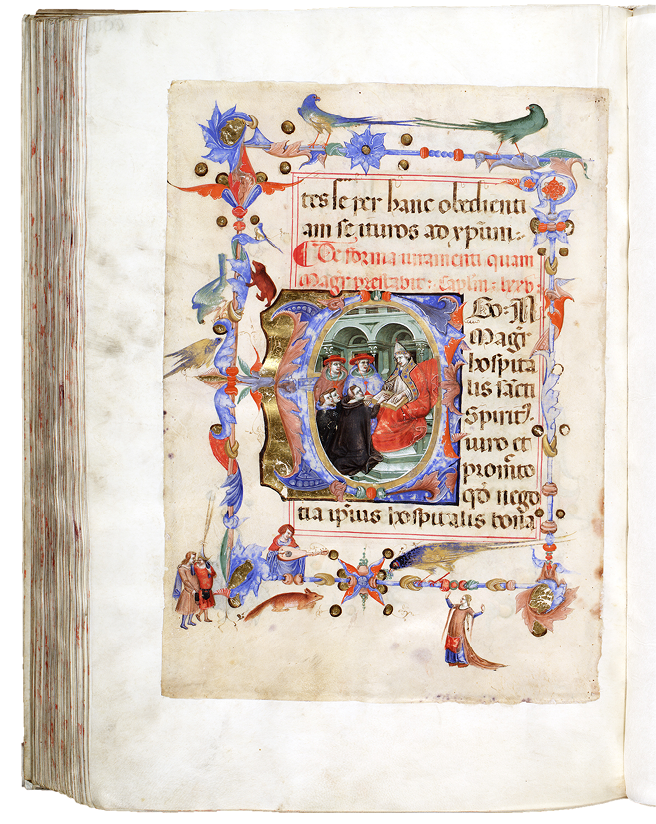 tes se per hanc obedienti
am se ituros ad xp̄um.
De forma iuramenti quam
Magr̄ prestabit: Cap̄lm: lxxv:
Ego: N̄
Magr̄
hospita
lis sācti
Spirit9.
iuro et
promito
qd̄ nego
tia ip̄ius hospitalis bona